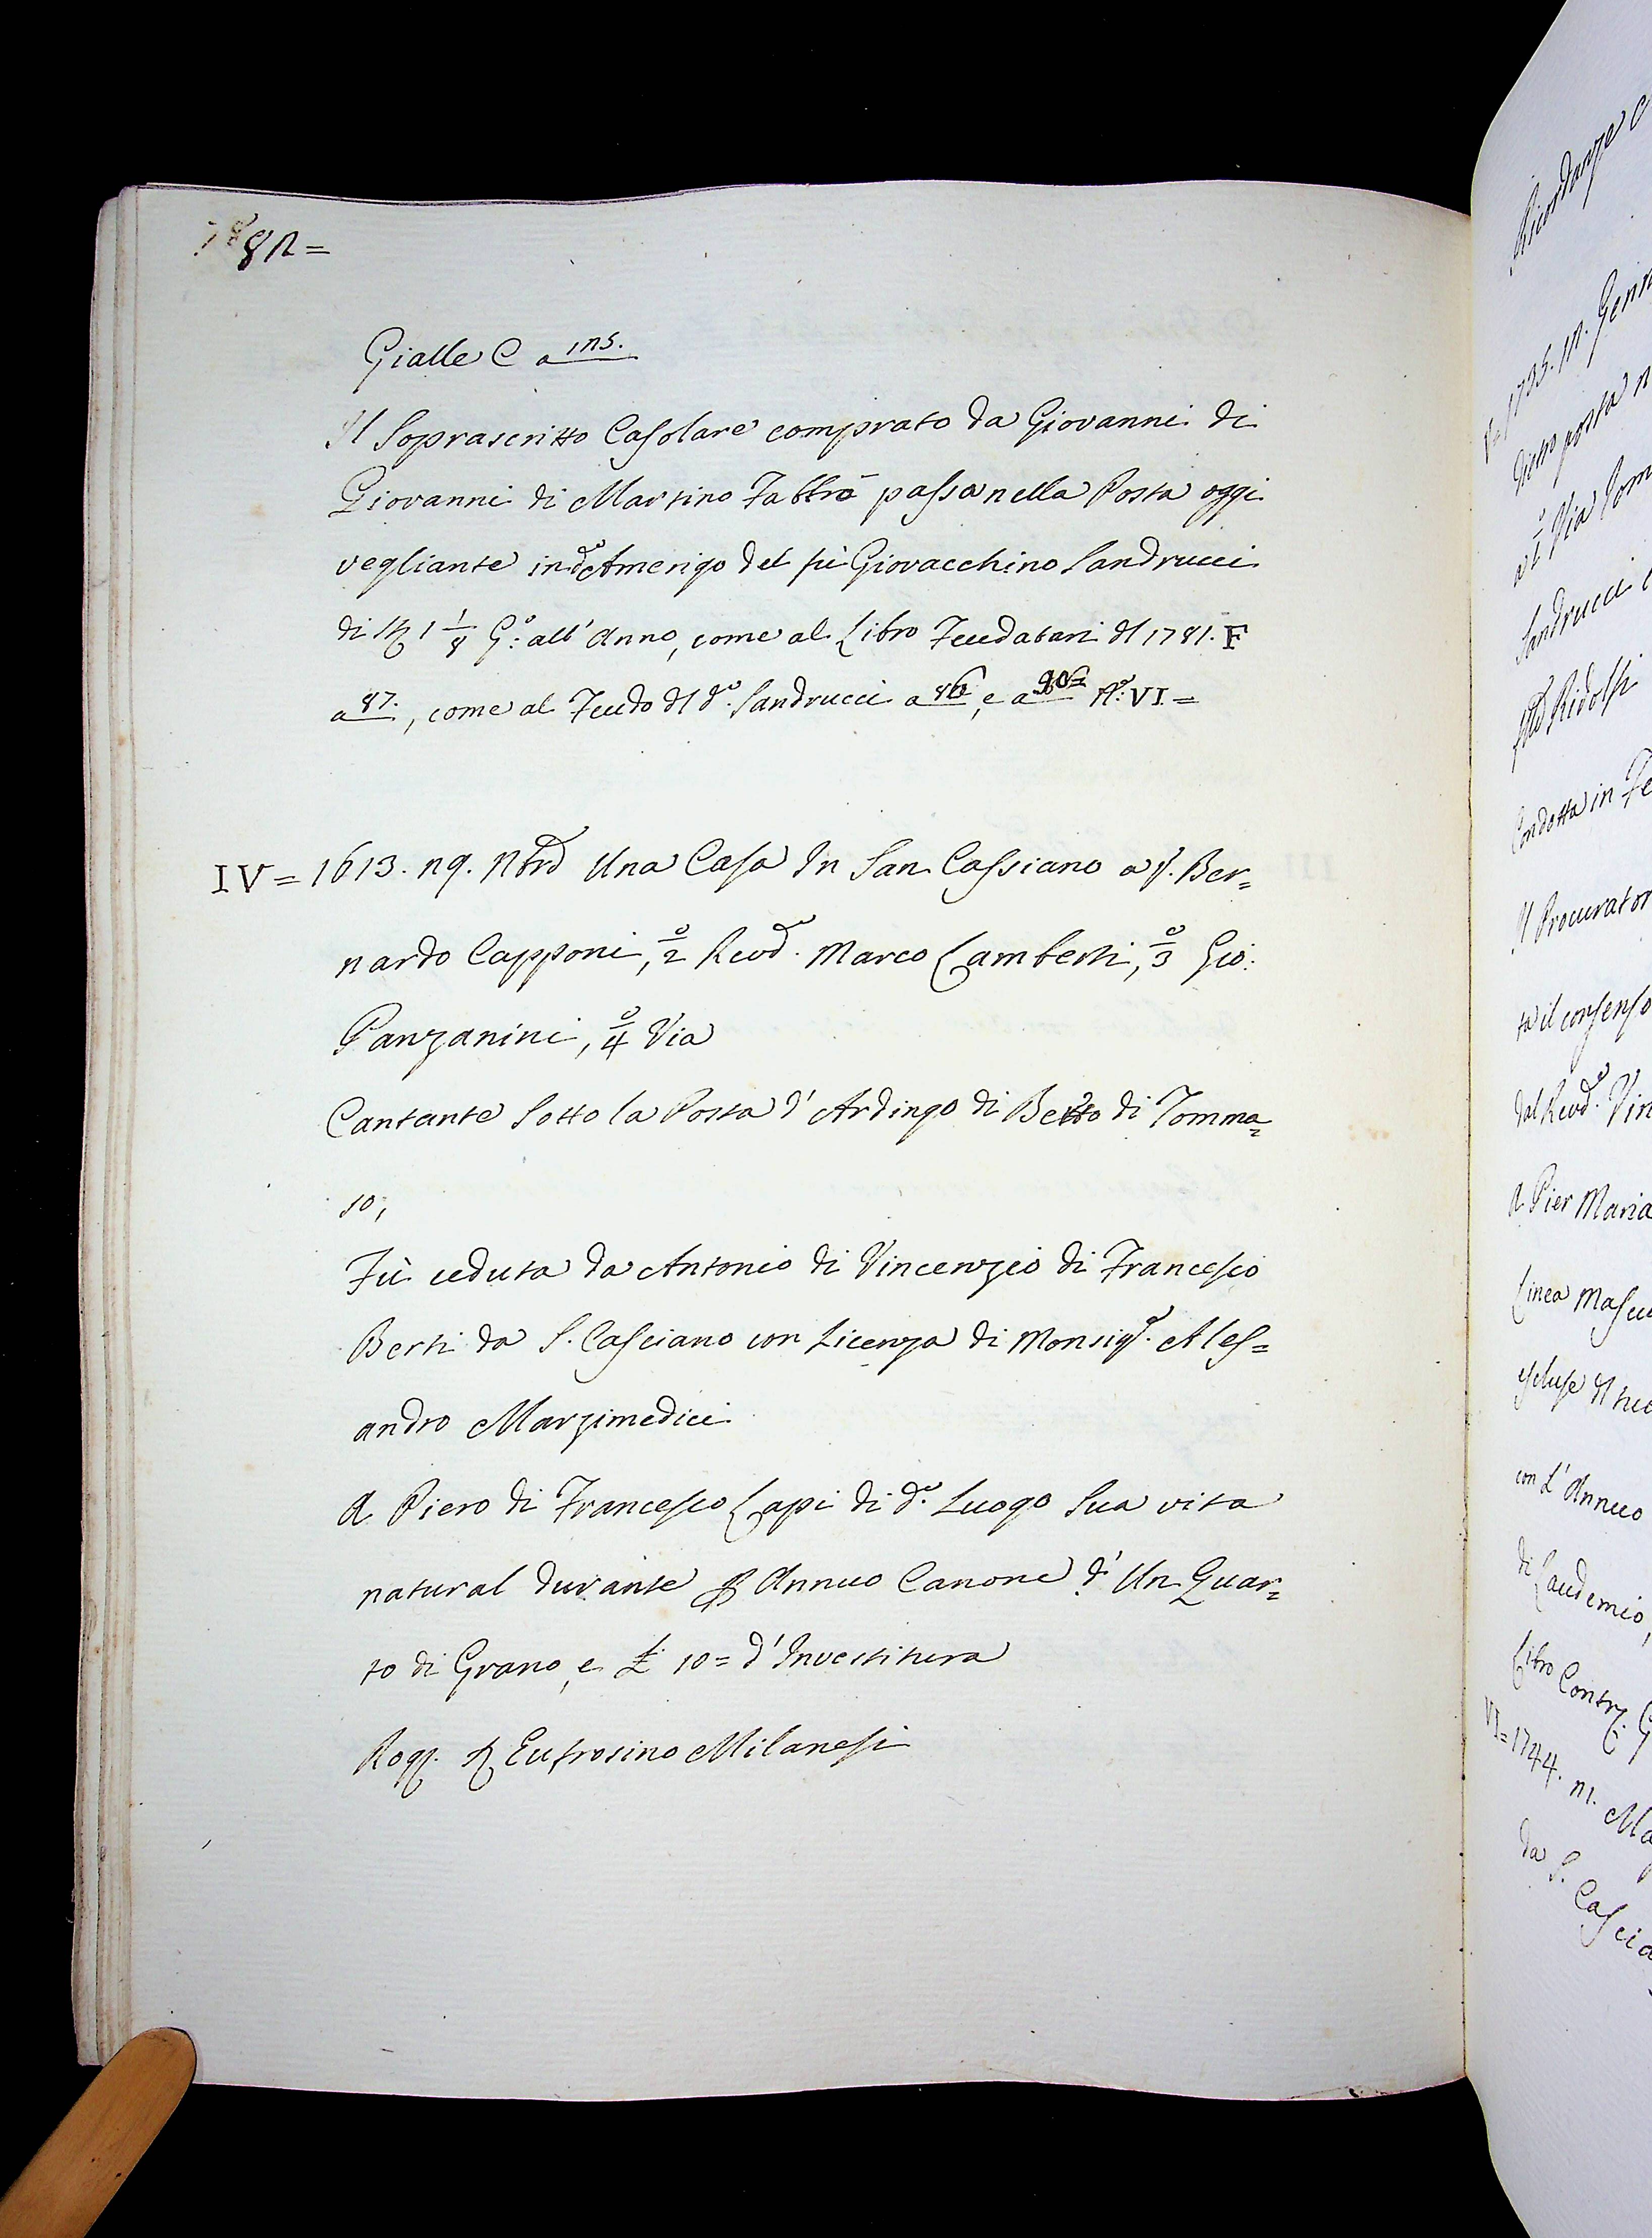 82=
Gialle C a 125.
Il Soprascritto Casolare comprato da Giovanni di
Giovanni di Martino Fabbrò passa nella Posta oggi
vegliante in d.º Amerigo del fù Giovacchino Sandrucci
di 1 1/8 G:º all'Anno, come al Libro Feudatari dl 1781. F
a 87., come al Feudo dl d.º Sandrucci a 86, e a N.º VI =
IV = 1613. 29. Nbre Una Casa In San Cassiano a p.º Ber=
nardo Capponi, 2º Revd.º Marco Lamberti, 3º Gio:
Panzanini, 4º Via
Cantante Sotto la Posta d'Ardingo di Betto di Tomma=
so;
Fù ceduta da Antonio di Vincenzio di Francesco
Berti da S. Casciano con Licenza di Monsig.r Ales=
andro Marzimedici
A Piero di Francesco Lapi di d.º Luogo Sua vita
natural durante p Annuo Canone d'Un Quar=
to di Grano, e £ 10= d'Investitura
Rog. Eufrosino Milanesi
Ricordanze
V= 1735.
a 1º Via
Sandrucci
Ridolfi
Condotta in
Il Procurator
ta il consenso
dal Revd.º Vin
A Pier Maria
Linea Mascu
escluse dl
con L'Annuo
di Laudemio,
Libro Contr.
VI= 1744. 21. Ma
da S. Cascia